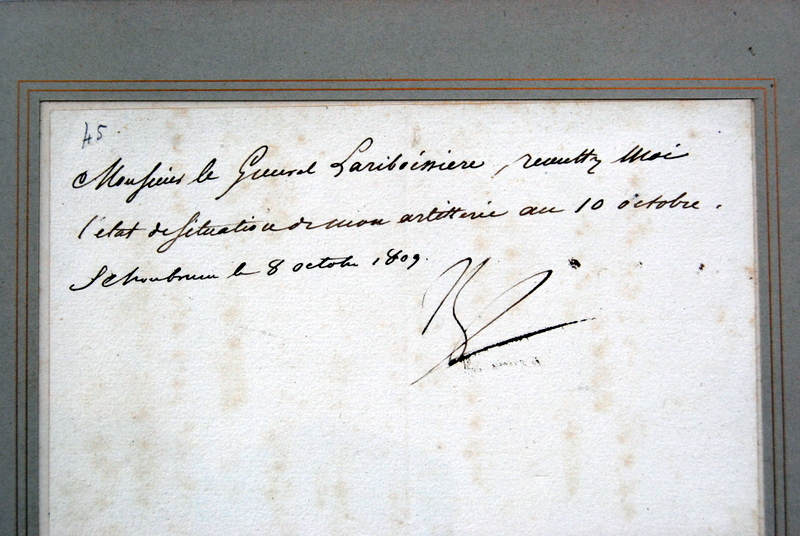 45.
Monsieur le General Lariboissiere, remettez Moi
l'etat de situation de mon artillerie au 10 octobre.
Schonbrunn le 8 octobre 1809.